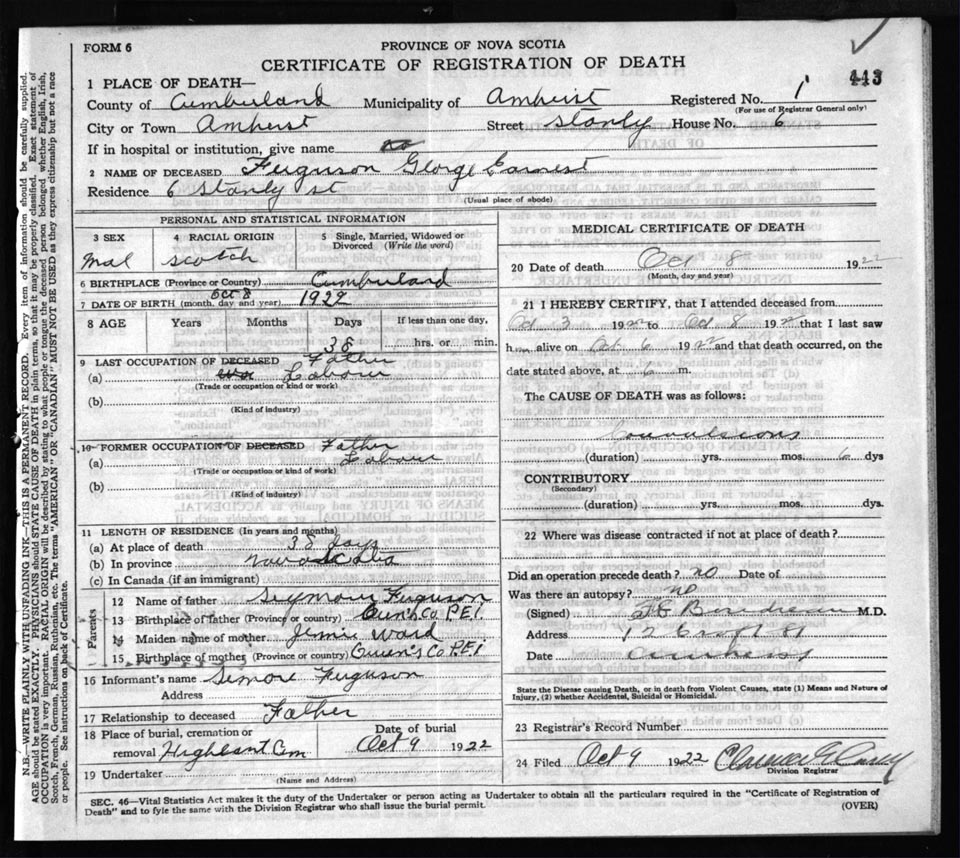 FORM 6
PROVINCE OF NOVA SCOTIA
CERTIFICATE OF REGISTRATION OF DEATH
443
1 PLACE OF DEATH—
County of Cumberland Municipality of Amherst Registered No. 1
(For use of Registrar General only)
City or Town Amherst Street Stanly House No. 6
If in hospital or institution, give name no
2 NAME OF DECEASED Ferguson George Earnest
Residence 6 Stanly st
(Usual place of abode)
PERSONAL AND STATISTICAL INFORMATION
3 SEX 4 RACIAL ORIGIN 5 Single, Married, Widowed or Divorced (Write the word)
Mal Scotch
6 BIRTHPLACE (Province or Country) Cumberland
7 DATE OF BIRTH (month, day and year) Oct 8 1922
8 AGE Years Months Days If less than one day,
38 hrs. or min.
9 LAST OCCUPATION OF DECEASED Father
(a) Labour
(Trade or occupation or kind or work)
(b)
(Kind of industry)
10 FORMER OCCUPATION OF DECEASED Father
(a) Labour
(Trade or occupation or kind of work)
(b)
(Kind of industry)
11 LENGTH OF RESIDENCE (In years and months)
(a) At place of death 38 days
(b) In province Nova Scotia
(c) In Canada (if an immigrant)
Parents
12 Name of father Seymour Ferguson
13 Birthplace of father (Province or country) Qun's Co P.E.I.
14 Maiden name of mother Jennie Ward
15 Birthplace of mother (Province or country) Queen's Co P.E.I
16 Informant's name Semore Ferguson
Address
17 Relationship to deceased Father
18 Place of burial, cremation or removal Date of burial
Highland Cem Oct 9 1922
19 Undertaker
(Name and Address)
MEDICAL CERTIFICATE OF DEATH
20 Date of death Oct 8 1922
(Month, day and year)
21 I HEREBY CERTIFY, that I attended deceased from
Oct 3 1922 to Oct 8 1922 that I last saw
him alive on Oct 6 1922 and that death occurred, on the
date stated above, at 6 m.
The CAUSE OF DEATH was as follows:
Convulsions
(duration) yrs. mos. 6 dys
CONTRIBUTORY
(Secondary)
(duration) yrs. mos. dys.
22 Where was disease contracted if not at place of death?
Did an operation precede death? no Date of
Was there an autopsy? no
(Signed) M.D.
Address 12 Croft St
Date Amherst
State the Disease causing Death, or in death from Violent Causes, state (1) Means and Nature of
Injury, (2) whether Accidental, Suicidal or Homicidal.
23 Registrar's Record Number
24 Filed Oct 9 1922
Division Registrar
SEC. 46—Vital Statistics Act makes it the duty of the Undertaker or person acting as Undertaker to obtain all the particulars required in the "Certificate of Registration of
Death" and to fyle the same with the Division Registrar who shall issue the burial permit.
(OVER)
N.B.—WRITE PLAINLY WITH UNFADING INK—THIS IS A PERMANENT RECORD. Every item of information should be carefully supplied.
AGE should be stated EXACTLY. PHYSICIANS should STATE CAUSE OF DEATH in plain terms, so that it may be properly classified. Exact statement of
OCCUPATION is very important. RACIAL ORIGIN will be described by stating to what people or tongue the deceased person belonged, whether English, Irish,
Scotch, French, German, Russian, Ruthenian, etc. The terms "AMERICAN" OR "CANADIAN" MUST NOT BE USED as they express citizenship but not a race
or people. See instructions on back of Certificate.